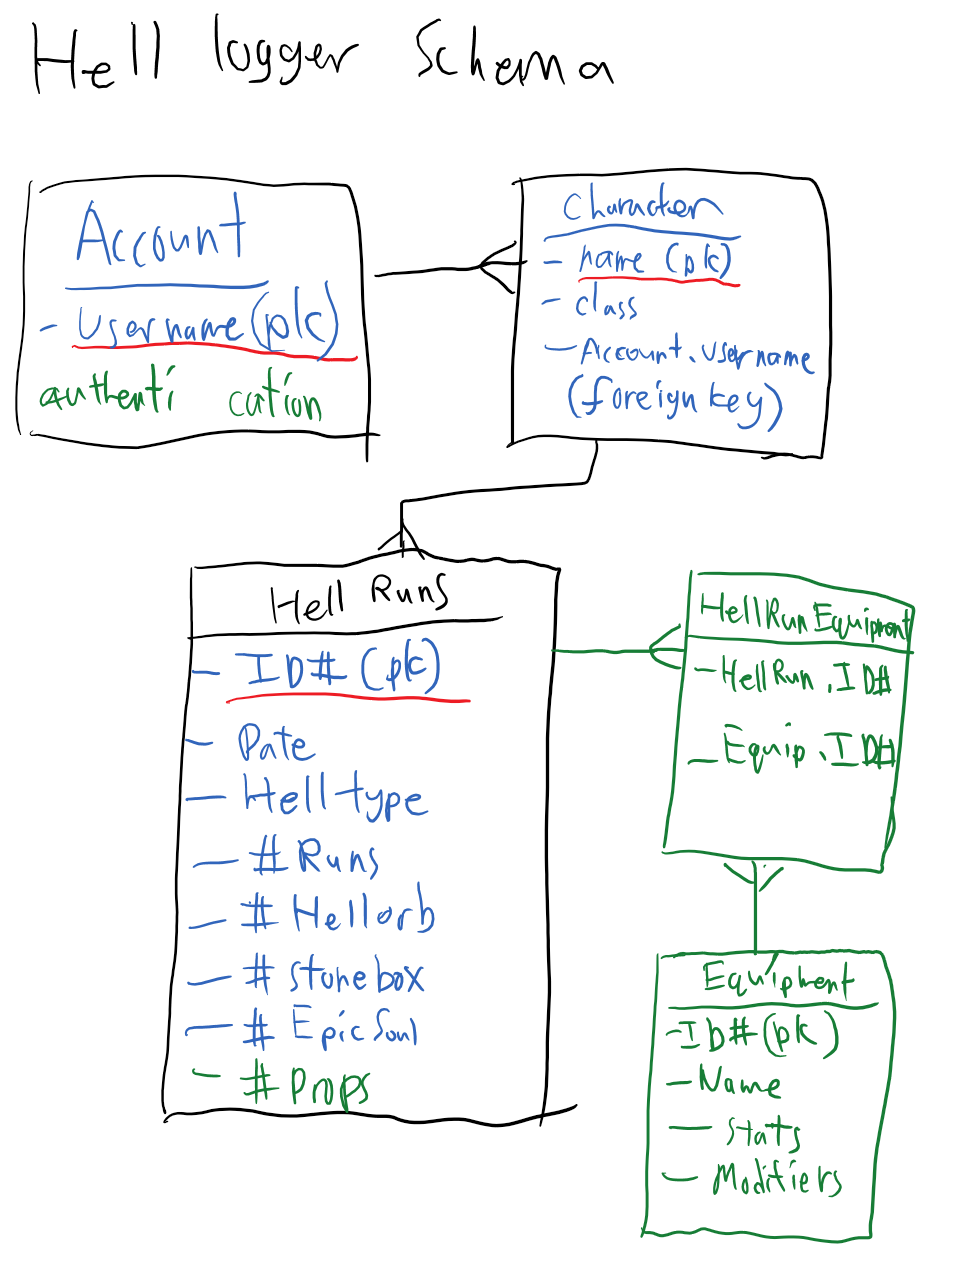 Hell logger Schema
Account
- Username (pk)
authenti cation
Character
- name (pk)
- class
- Account.username
(foreign key)
Hell Runs
- ID# (pk)
- Date
- Hell type
- # Runs
- # Hellorb
- # stonebox
- # Epic Soul
- # Props
HellRunEquipment
- HellRun.ID#
- Equip.ID#
Equipment
- ID# (pk)
- Name
- stats
- Modifiers